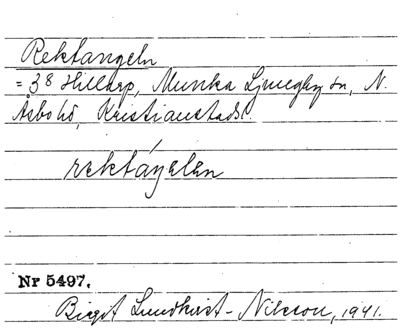 Rektangeln
= 3⁸ Hillarp, Munka Ljungby sn, N.
Åsbo hd, Kristianstads l.
rektáŋelen
Nr 5497.
Birgit Lundkvist-Nilsson, 1941.